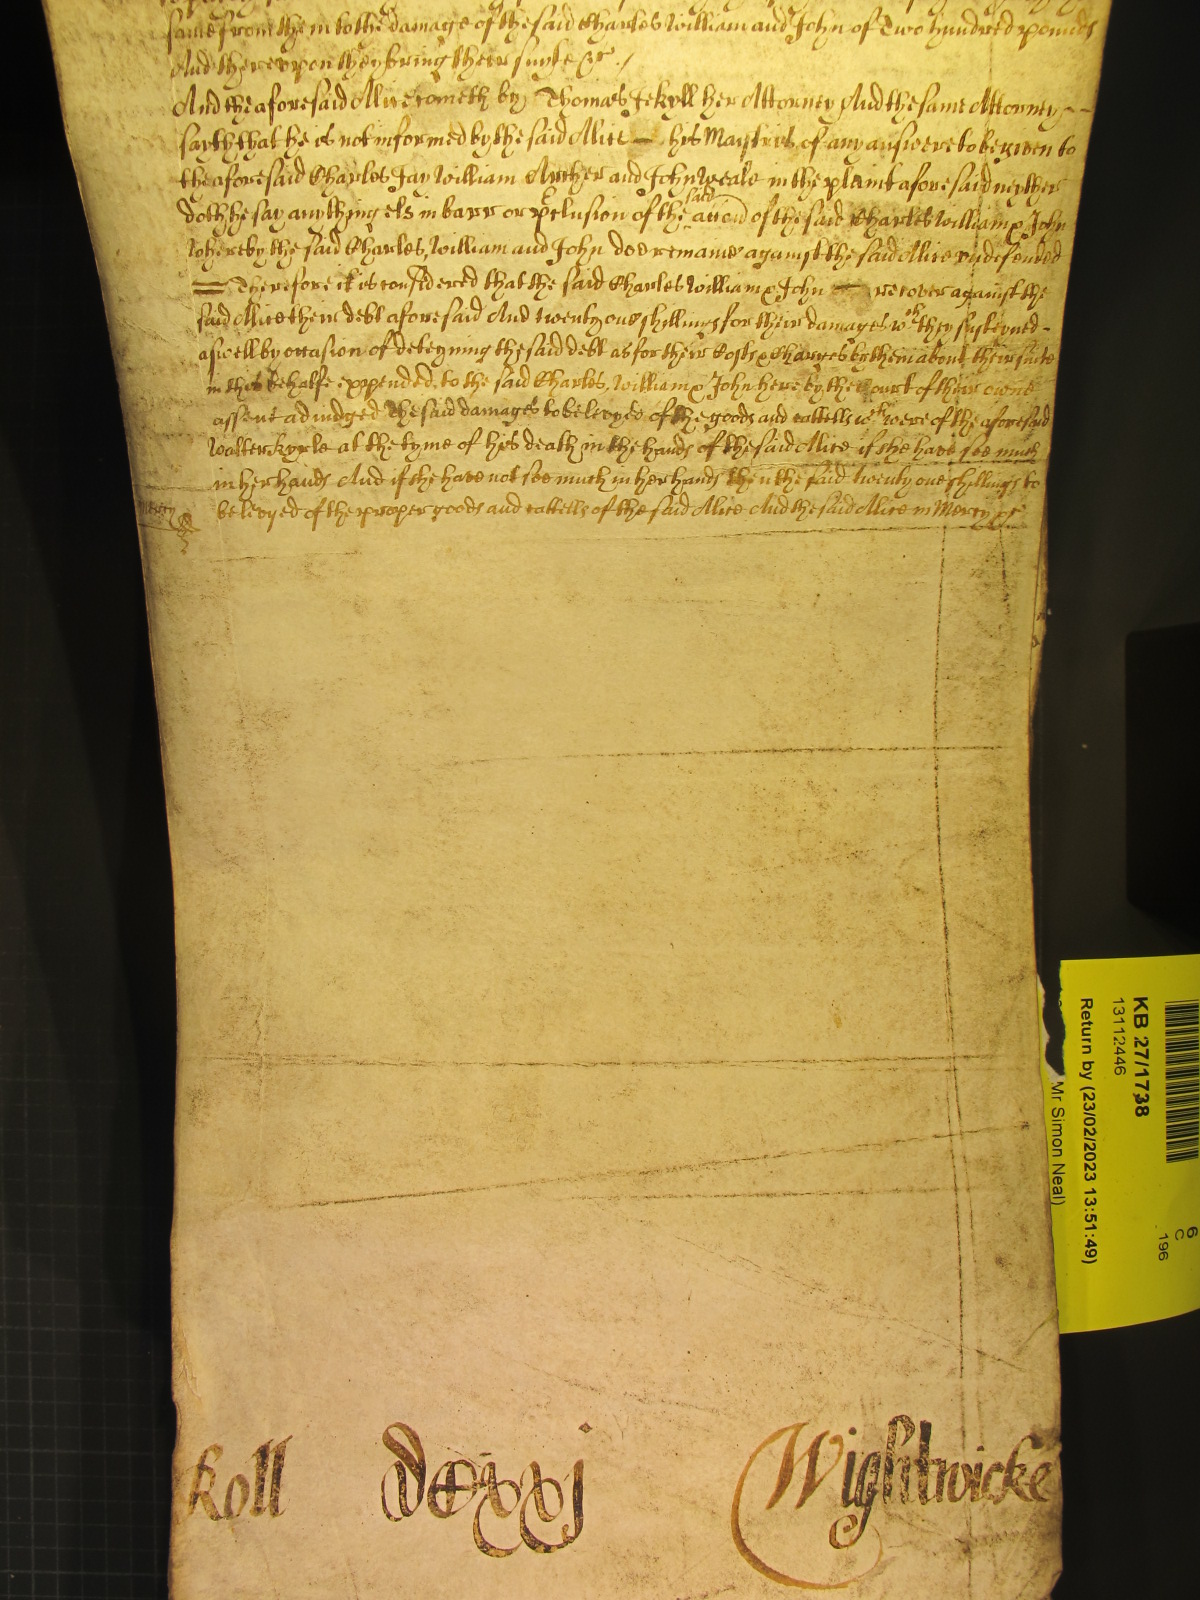 same from them to the damage of the said Charles William and John of Two hundred pounds
And thereupon they bring their suyte &c ./
And the aforesaid Alice cometh by Thomas Jekyll her Attorney And the same Attorney
sayth that he is not informed by the said Alice his Maistris of any answere to be given to
the aforesaid Charles Jay William Archer and John Weale in the plaint aforesaid neyther
doth he say anything els in barr or p'clusion of the said accon of the said Charles William & John
whereby the said Charles, William and John doe remaine against the said Alice undefended
Therefore it is considered that the said Charles William & John recover against the
said Alice their debt aforesaid And twenty one shillings for their damages wch they susteyned
aswell by occasion of deteyning the said debt as for their Costs & Charges by them about their suite
in this behalfe expended, to the said Charles, William & John here by the Court of their owne
assent adiudged The said damages to be levyed of the goods and cattells wch were of the aforesaid
Walter Kyrle at the tyme of his death in the hands of the said Alice if she have see much
in her hands And if she have not see much in her hands then the said twenty one shillings to
be levyed of the proper goods and cattells of the said Alice And the said Alice in Mercy &c
Mercy
Roll DCxxj Wightwicke
KB 27/1738
13112446
Return by (23/02/2023 13:51:49)
Mr Simon Neal)
6
C
196